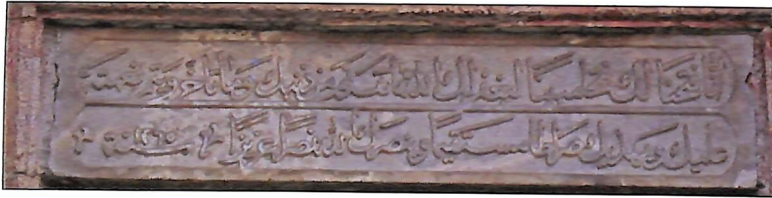 انا فتحنا لك فتحا مبينا ليغفر لك الله ما تقدم من ذنبك وما تاخر ويتم نعمته
عليك ويهديك صراطا مستقيما وينصرك الله نصرا عزيزا سنة